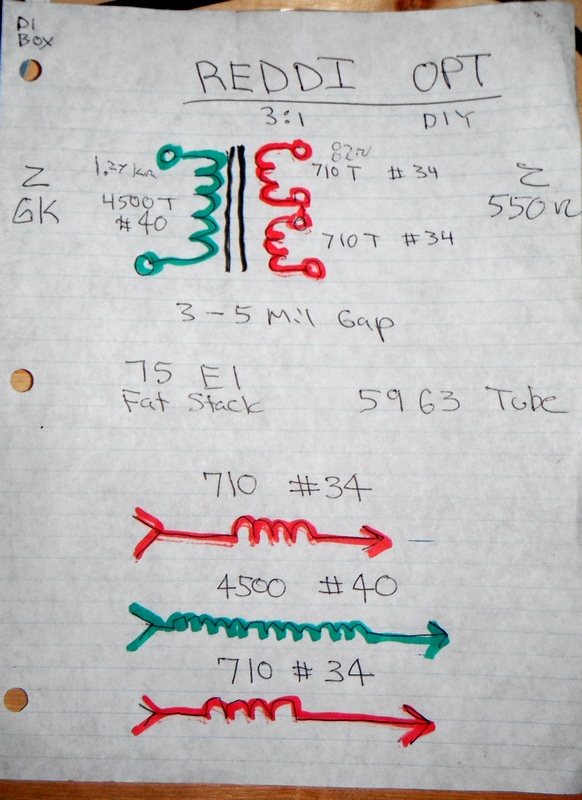 DI
BOX
REDDI OPT
3:1 DIY
Z
6K
4500T
#40
710 T #34
710 T #34
Z
550Ω
3-5 Mil Gap
75 EI
Fat Stack
5963 Tube
710 #34
4500 #40
710 #34